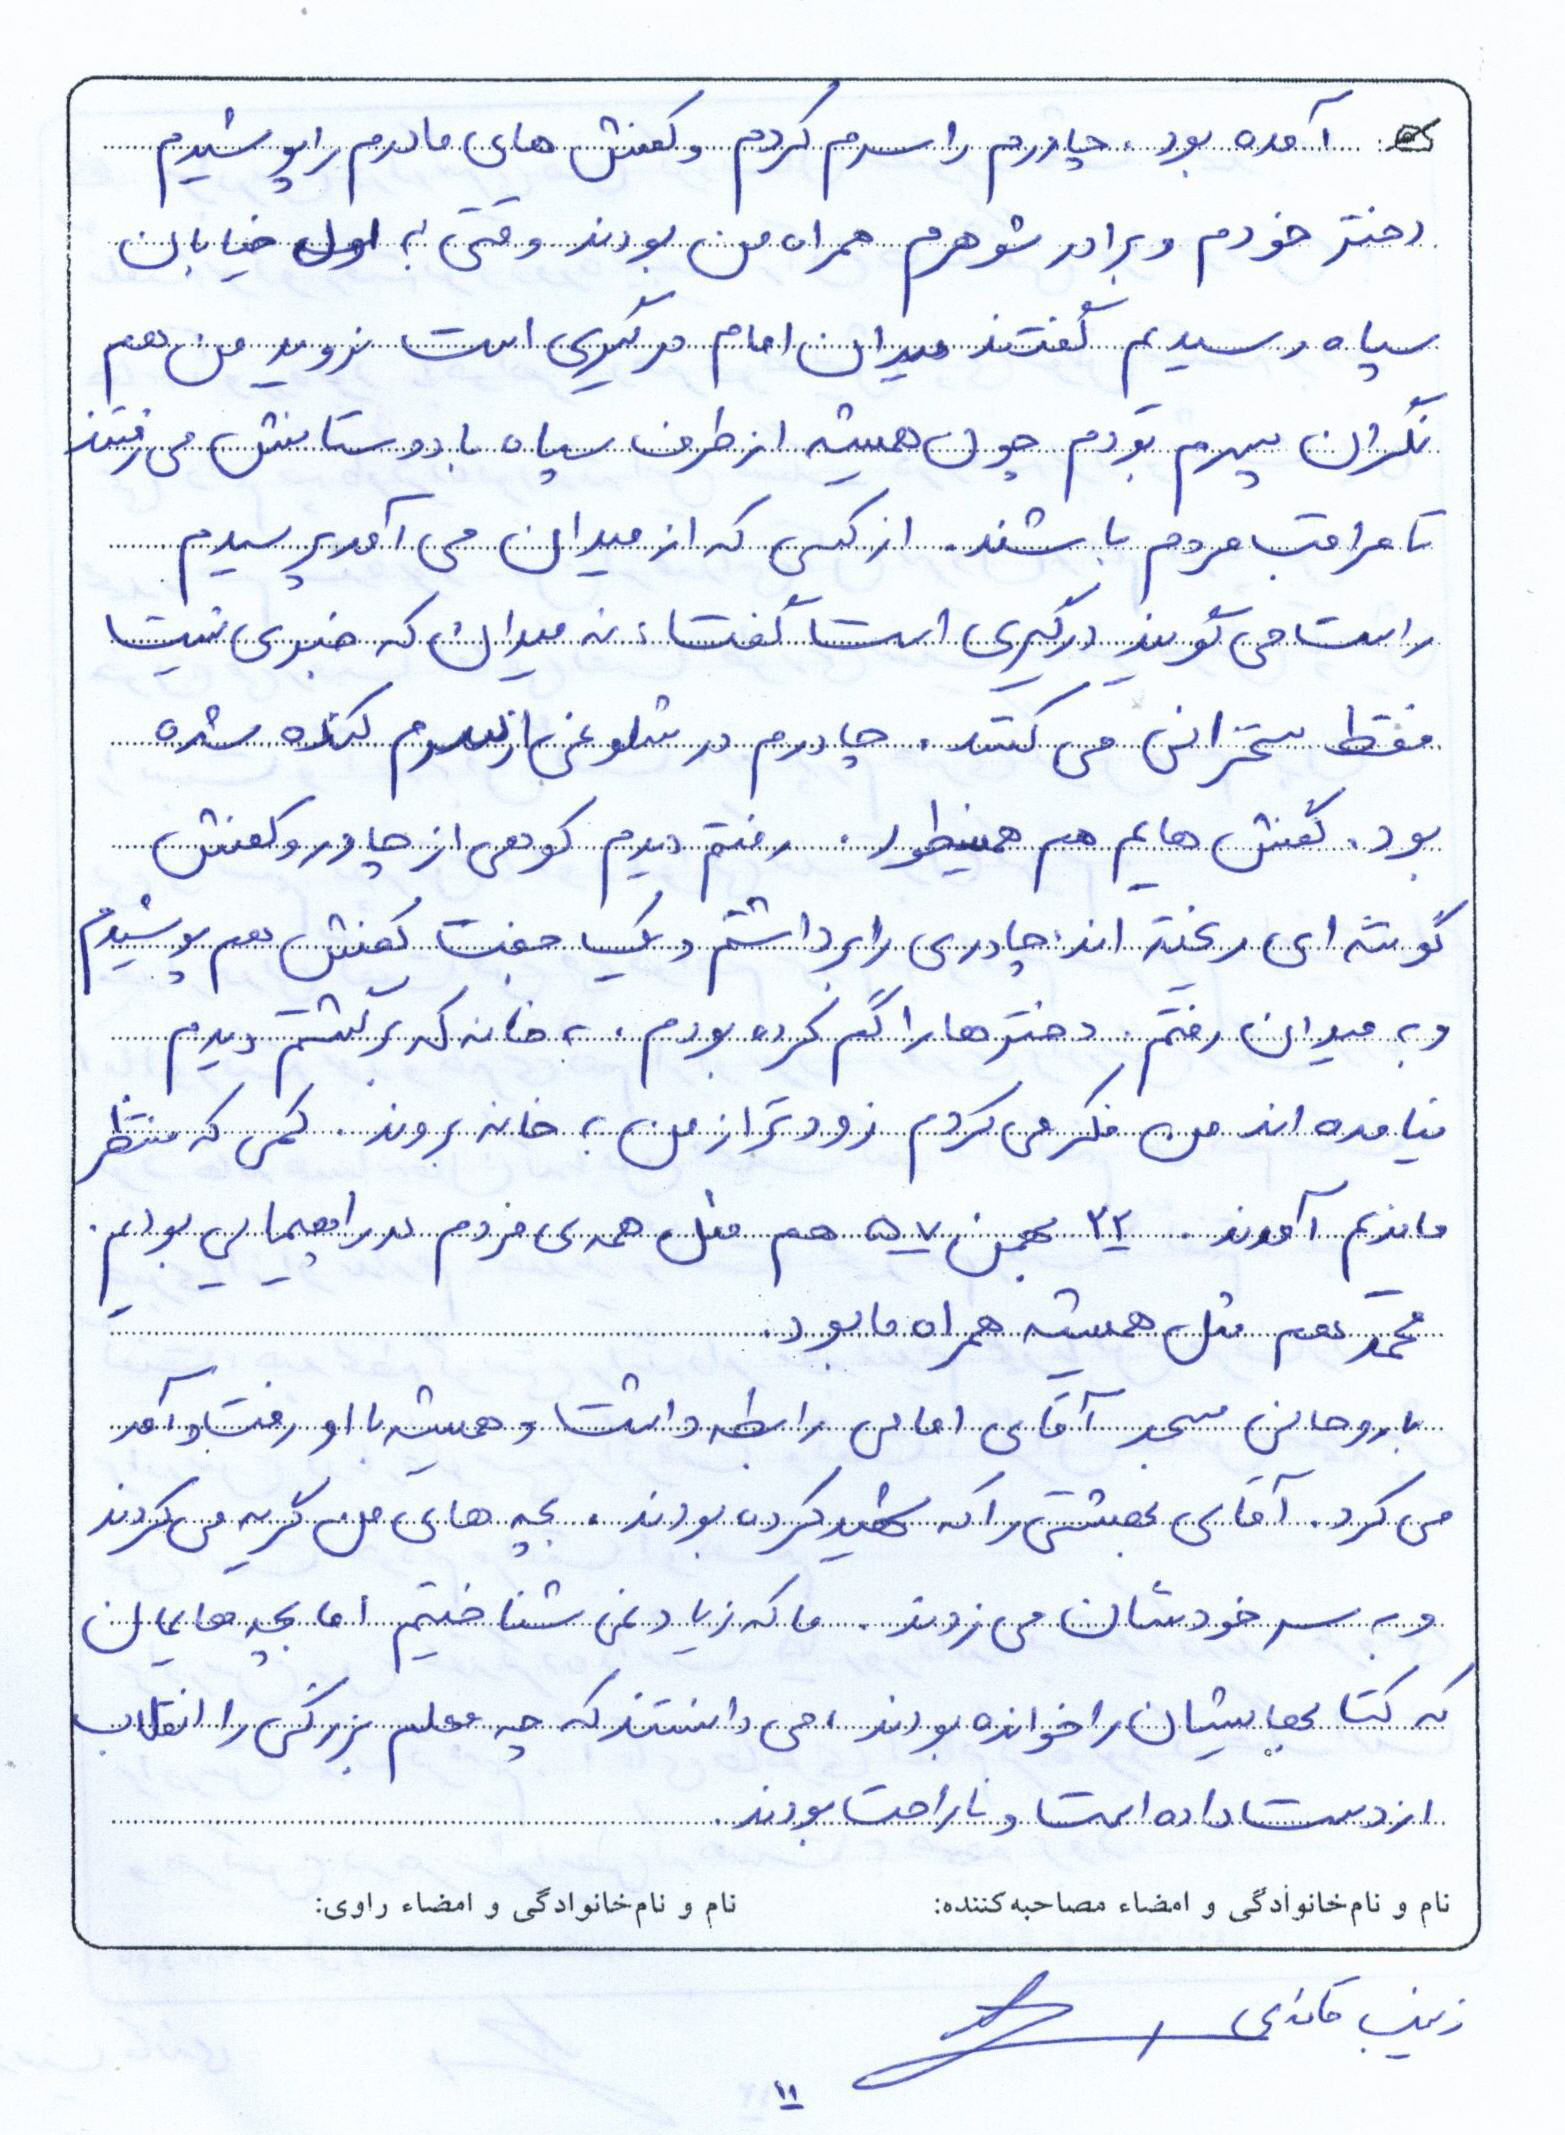 آمده بود. چادرم را سرم کردم و کفش های مادرم را پوشیدم
دختر خودم و برادر شوهرم همراه من بودند وقتی به اول خیابان
سپاه رسیدیم گفتند میدان امام درگیری است نروید من هم
نگران پسرم بودم چون همیشه از طرف سپاه با دوستانش می رفتند
تا مراقب مردم باشند. از کسی که از میدان می آمد پرسیدم
راست می گویند درگیری است گفت: نه میدان که خبری نیست
فقط سخنرانی می کنند. چادرم در شلوغی از سرم کنده شده
بود. کفش هایم هم همینطور. رفتم دیدم کوهی از چادر و کفش
گوشه ای ریخته اند. چادری را برداشتم و یک جفت کفش هم پوشیدم
و به میدان رفتم. دخترها را گم کرده بودم. به خانه که برگشتم دیدم
نیامده اند من فکر می کردم زودتر از من به خانه بروند. کمی که منتظر
ماندیم آمدند. ۲۲ بهمن ۵۷ هم مثل همه ی مردم در راهپیمایی بودیم.
محمد هم مثل همیشه همراه ما بود.
با روحانی مسجد آقای امامی رابطه داشت و همیشه با او رفت و آمد
می کرد. آقای بهشتی را که شهید کرده بودند. بچه های من گریه می کردند
و به سر خودشان می زدند. ما که زیاد نمی شناختیم اما بچه هایمان
که کتابهایشان را خوانده بودند، می دانستند که چه معلم بزرگی را انقلاب
از دست داده است و ناراحت بودند.
نام و نام‌خانوادگی و امضاء مصاحبه‌کننده: نام و نام‌خانوادگی و امضاء راوی:
زینب
۱۱